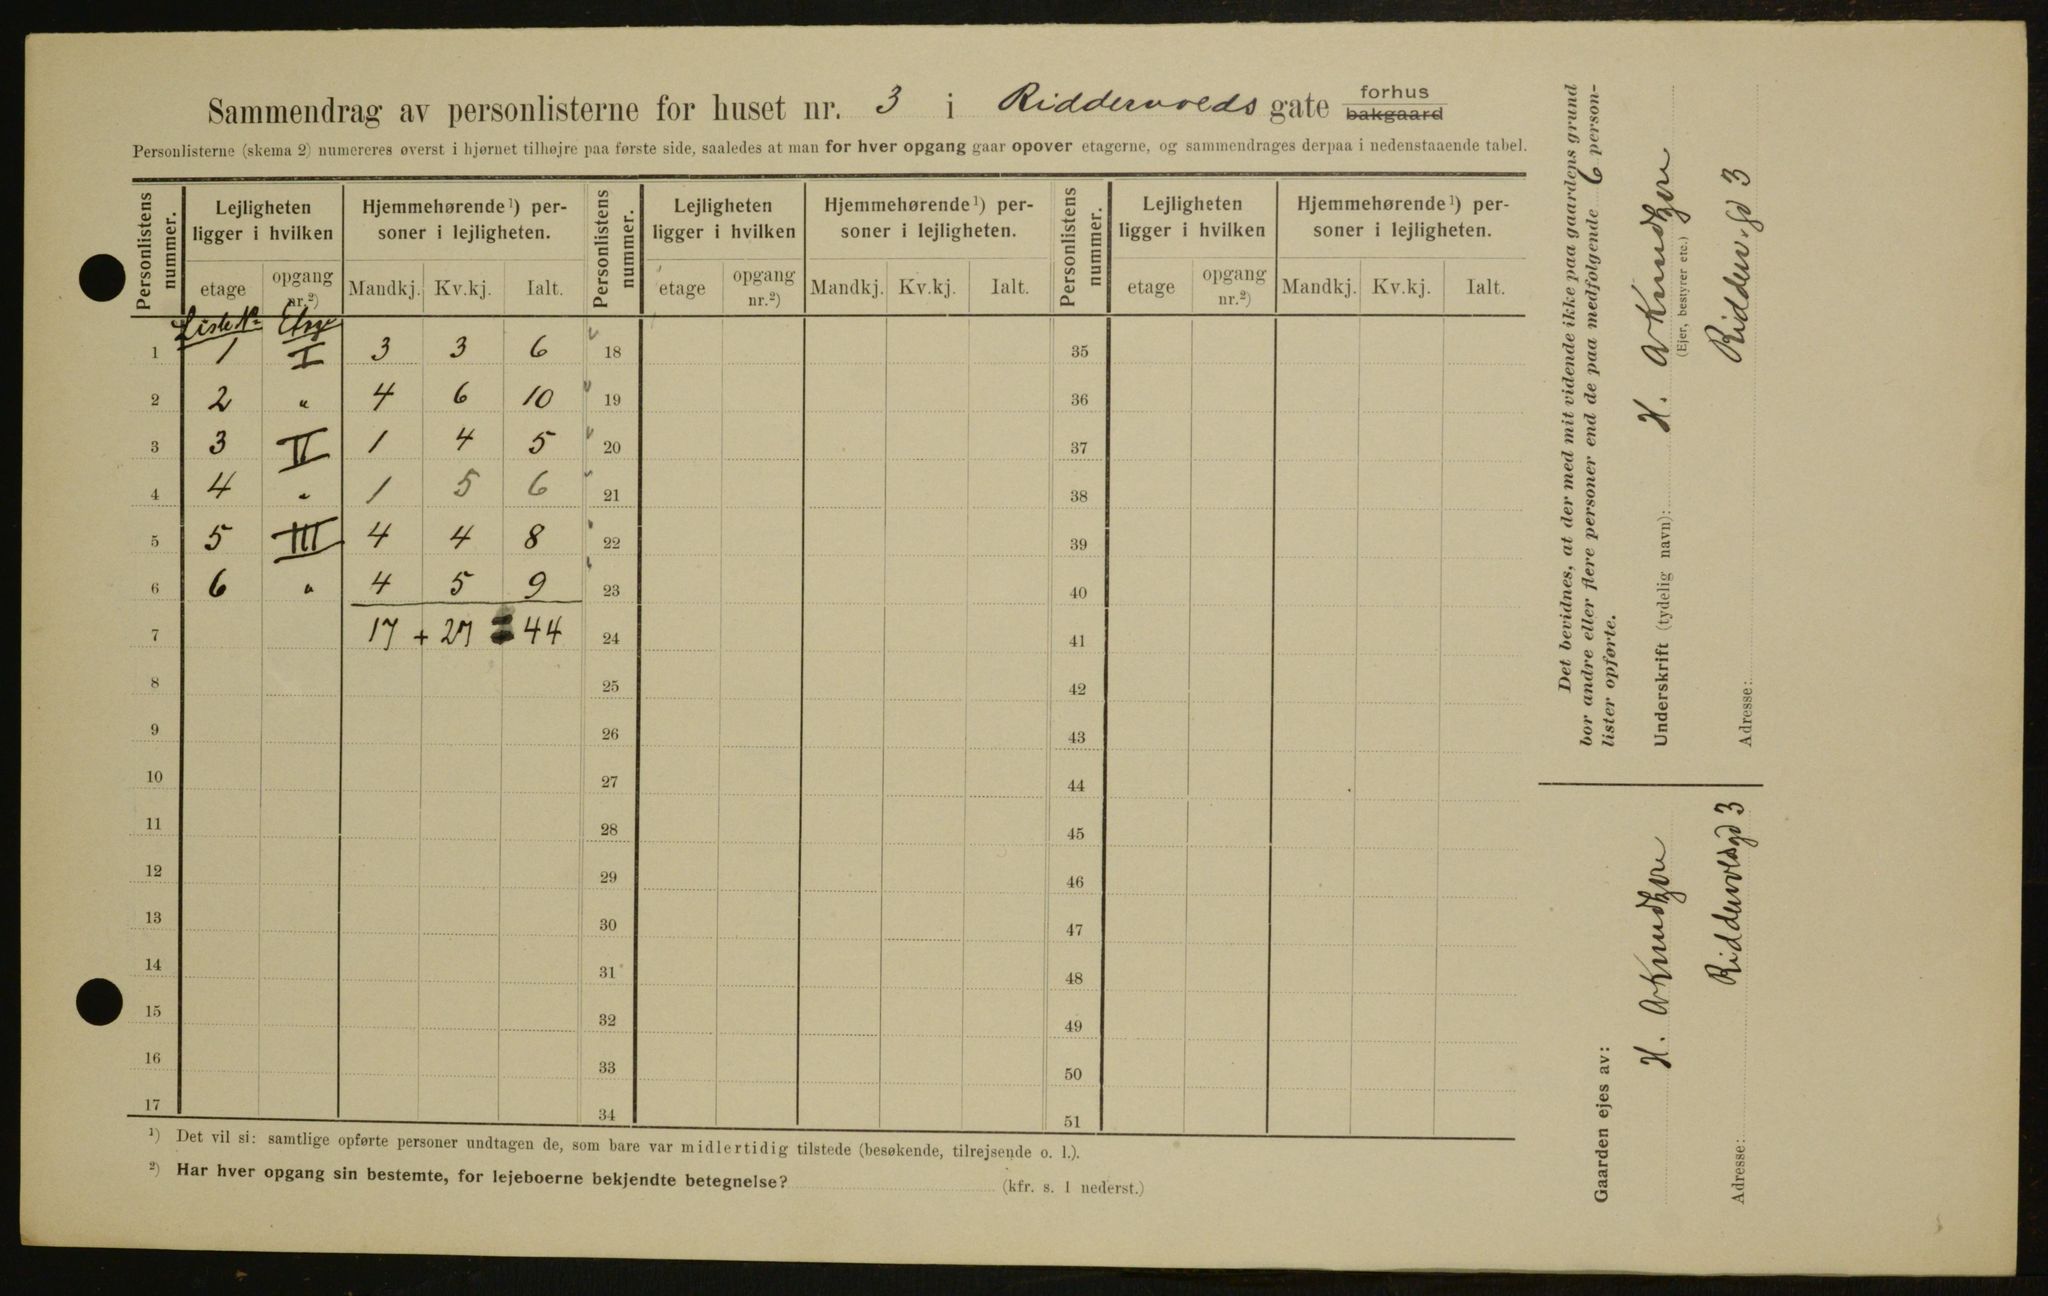 Sammendrag av personlisterne for huset nr. 3 i Riddervolds gate forhus bakgaard
Personlisterne (skema 2) numereres øverst i hjørnet tilhøjre paa første side, saaledes at man for hver opgang gaar opover etagerne, og sammendrages derpaa i nedenstaaende tabel.
Personlistens nummer. Lejligheten ligger i hvilken Hjemmehørende¹) personer i lejligheten. Personlistens nummer. Lejligheten ligger i hvilken Hjemmehørende¹) personer i lejligheten. Personlistens nummer. Lejligheten ligger i hvilken Hjemmehørende¹) personer i lejligheten.
etage opgang nr.²) Mandkj. Kv.kj. Ialt. etage opgang nr.²) Mandkj. Kv.kj. Ialt. etage opgang nr.²) Mandkj. Kv.kj. Ialt.
Liste No Etage
1 1 I 3 3 6 18 35
2 2 " 4 6 10 19 36
3 3 II 1 4 5 20 37
4 4 " 1 5 6 21 38
5 5 III 4 4 8 22 39
6 6 " 4 5 9 23 40
7 17 + 27 = 44 24 41
8 25 42
9 26 43
10 27 44
11 28 45
12 29 46
13 30 47
14 31 48
15 32 49
16 33 50
17 34 51
¹) Det vil si: samtlige opførte personer undtagen de, som bare var midlertidig tilstede (besøkende, tilrejsende o. l.).
²) Har hver opgang sin bestemte, for lejeboerne bekjendte betegnelse? (kfr. s. 1 nederst.)
Det bevidnes, at der med mit vidende ikke paa gaardens grund
bor andre eller flere personer end de paa medfølgende 6 person-
lister opførte.
Underskrift (tydelig navn): H. Knudtzon
(Ejer, bestyrer etc.)
Adresse: Ridderv.gd 3
Gaarden ejes av:
H. Knudtzon
Adresse: Riddervoldsgd 3